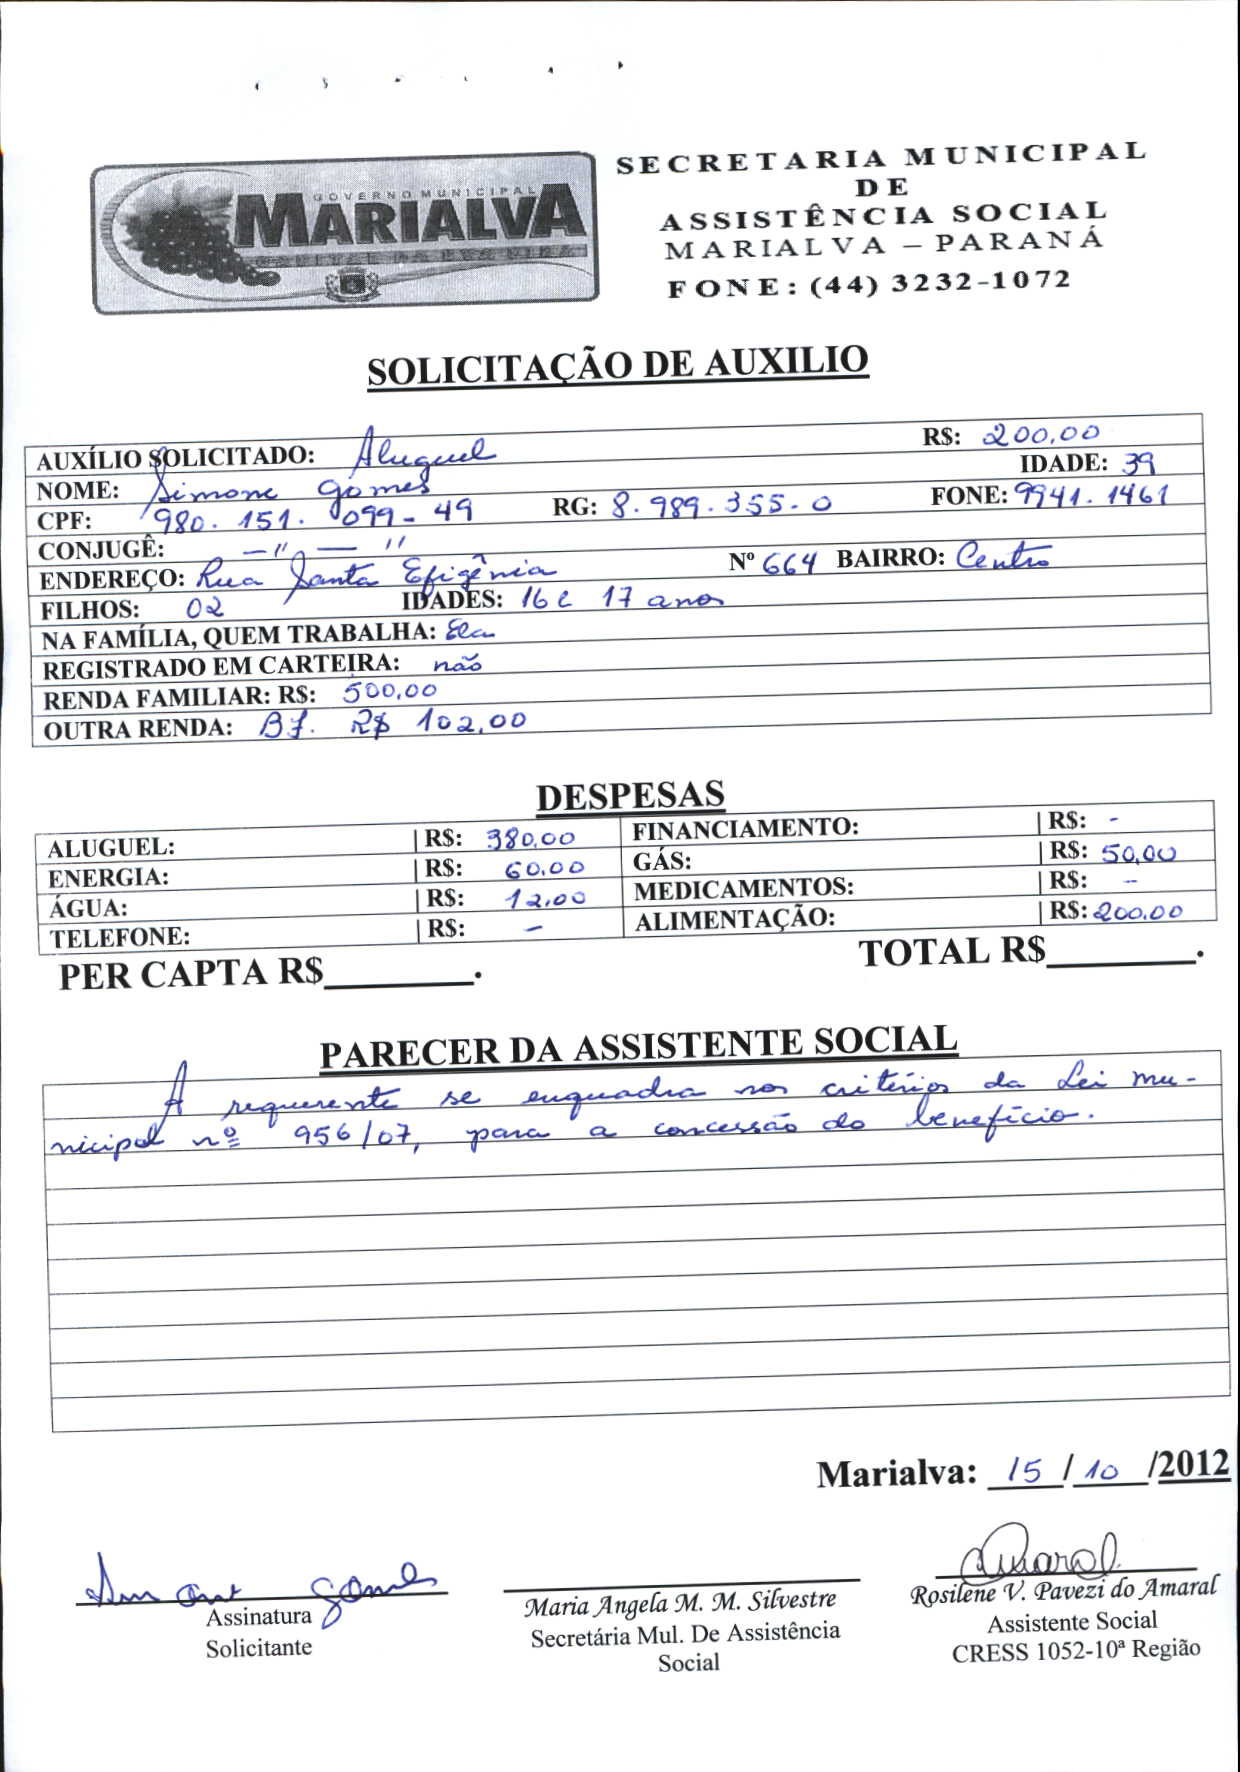 GOVERNO MUNICIPAL
MARIALVA
CAPITAL DA UVA FINA
SECRETARIA MUNICIPAL
DE
ASSISTÊNCIA SOCIAL
MARIALVA – PARANÁ
FONE: (44) 3232-1072
SOLICITAÇÃO DE AUXILIO
AUXÍLIO SOLICITADO: Aluguel R$: 200,00
NOME: Simone Gomes IDADE: 39
CPF: 980.151.099-49 RG: 8.989.355-0 FONE: 9941.1461
CONJUGÊ: —"— "
ENDEREÇO: Rua Santa Efigênia Nº 664 BAIRRO: Centro
FILHOS: 02 IDADES: 16 e 17 anos
NA FAMÍLIA, QUEM TRABALHA: Ela
REGISTRADO EM CARTEIRA: não
RENDA FAMILIAR: R$: 500,00
OUTRA RENDA: BF. R$ 102,00
DESPESAS
ALUGUEL: R$: 380,00 FINANCIAMENTO: R$: -
ENERGIA: R$: 60,00 GÁS: R$: 50,00
ÁGUA: R$: 12,00 MEDICAMENTOS: R$: -
TELEFONE: R$: - ALIMENTAÇÃO: R$: 200,00
PER CAPTA R$________. TOTAL R$________.
PARECER DA ASSISTENTE SOCIAL
A requerente se enquadra nos critérios da Lei mu-
nicipal nº 956/07, para a concessão do benefício.
Marialva: 15/10/2012
Simone Gomes
Amaral
Assinatura
Solicitante
Maria Angela M. M. Silvestre
Secretária Mul. De Assistência
Social
Rosilene V. Pavezi do Amaral
Assistente Social
CRESS 1052-10ª Região